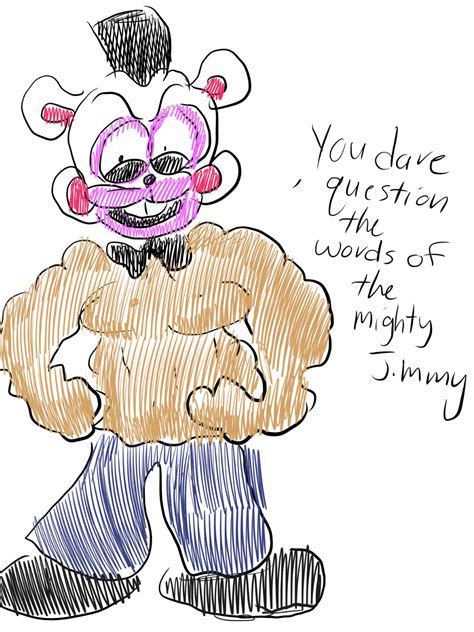 You dare
question
the
words of
the
mighty
Jimmy